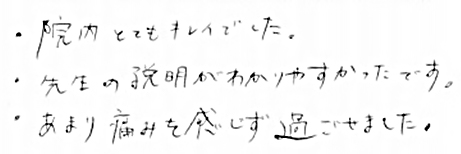 ・院内とてもキレイでした。
・先生の説明がわかりやすかったです。
・あまり痛みを感じず過ごせました。